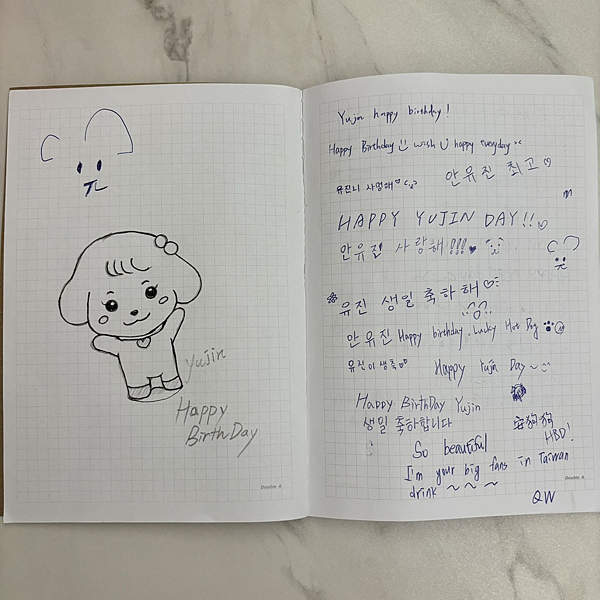 Yujin
Happy
BirthDay
Double A
Yujin happy birthday!
Happy Birthday wish U happy everyday
안유진 최고♡
유진니 사랑해♡
HAPPY YUJIN DAY!!♡
안유진 사랑해!!!♥
유진 생일 축하해♡
안유진 Happy birthday. Lucky Hot Dog
유진이 생축♡♡
Happy Yujin Day~
Happy BirthDay Yujin
생일 축하합니다
安狗狗
HBD!
So beautiful
I'm your big fans in Taiwan
drink ~ ~ ~
QW
Double A